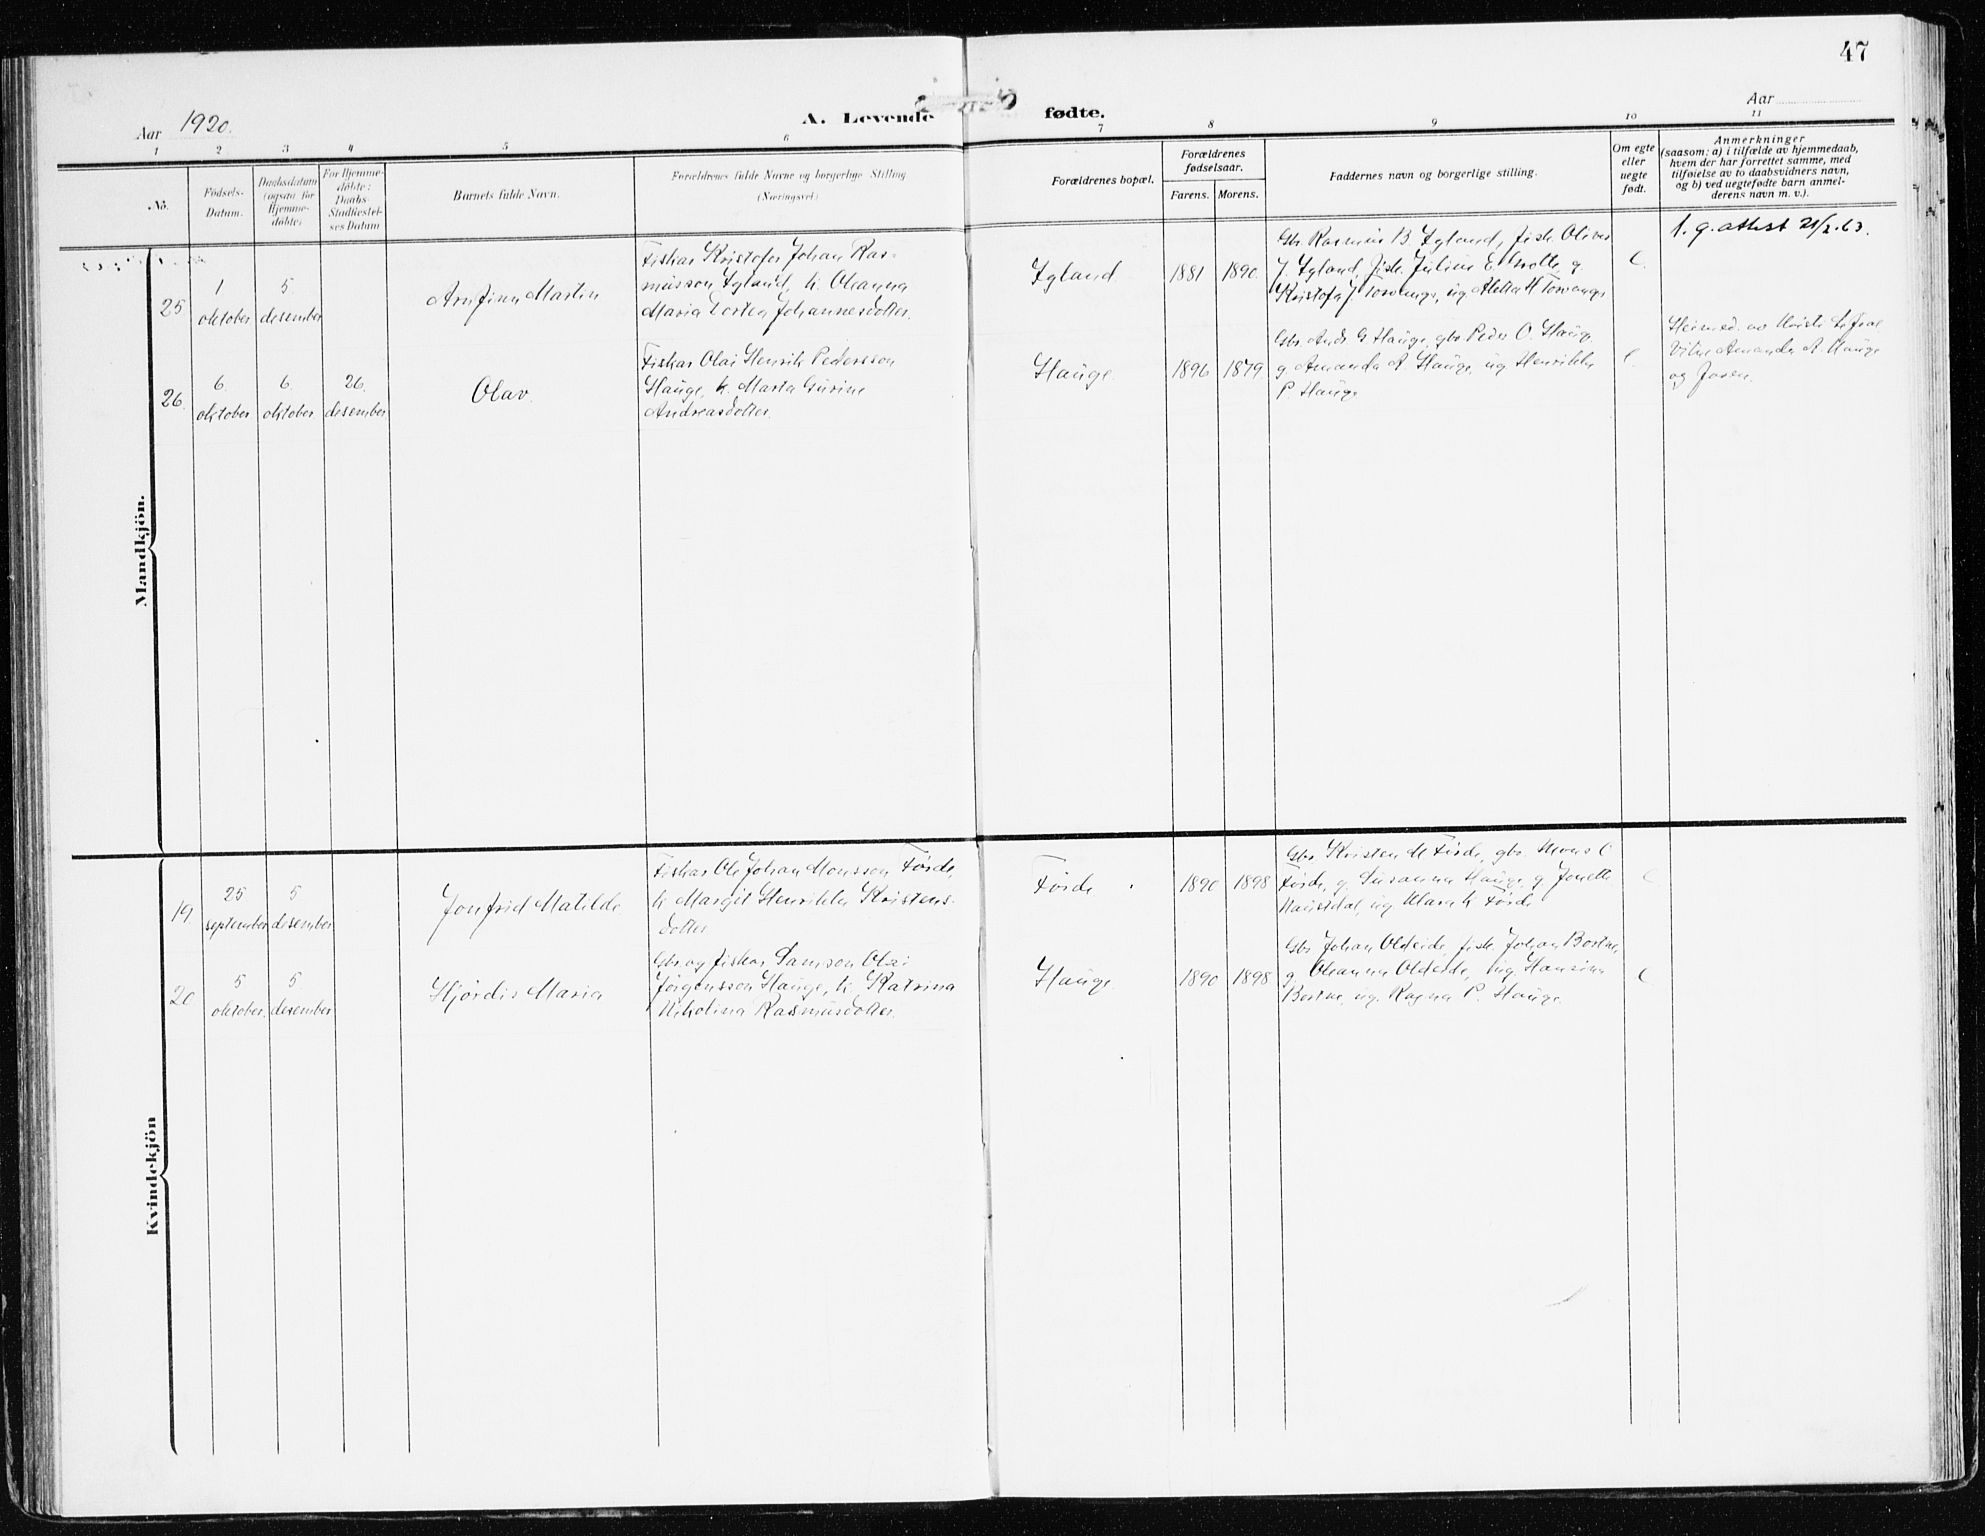 47
Aar 1920.
A. Levende fødte.
Aar
1 2 3 4 5 6 7 8 9 10 11
No.
Fødsels-
Datum.
Daabsdatum
(ogsaa for
Hjemme-
døbte)
For Hjemme-
døbte:
Daabs-
Stadfæstel-
ses Datum
Barnets fulde Navn.
Forældrenes fulde Navne og borgerlige Stilling
(Næringsvei)
Forældrenes bopæl.
Forældrenes
fødselsaar.
Farens. Morens.
Faddernes navn og borgerlige stilling.
Om egte
eller
uegte
født.
Anmerkninger
(saasom: a) i tilfælde av hjemmedaab,
hvem der har forrettet samme, med
tilføielse av to daabsvidners navn,
og b) ved uegtefødte barn anmel-
derens navn m. v.).
Mandkjön.
25
1
oktober
5
desember
Arnfinn Martin
Fiskar Kristofer Johan Ras-
musson Igland, k. Oleanna
Maria Dortea Johannesdotter.
Igland
1881 1890
Gbr. Rasmus B. Igland, fisk. Oliver
J. Igland, fisk. Julius E. g.
Kristofa J.
e.
1. g. attest 21/2.63.
26.
6.
oktober
6.
oktober
26.
desember
Olav.
Fiskar Olai Henrik Pedersson
Hauge, k. Marta Gurine
Andreasdotter.
Hauge
1896 1879.
Gbr. Ands G Hauge, gbr Peder O. Hauge
g. Amanda A. Hauge, ug Henrikke
P. Hauge
e.
Heimed. av
Vitne Amanda A. Hauge
og
Kvindekjön
19
25
september
5
desember
Jonfrid Matilde
Fiskar Ole Johan Monsson Førde,
k. Margit Henrikke Kristens-
dotter
Førde
1890 1898
Gbr. Kristen M Førde, gbr. Mons O
Førde, g. Susanna Hauge, g. Jonette
Naustdal, ug. Klara K. Førde
e
20
5
oktober.
5.
desember
Hjørdis Maria
Gbr og fiskar Samson Olai
Jørgensson Hauge, k. Katrina
Nikolina Rasmusdotter.
Hauge
1890 1898
Gbr Johan Oldeide, fisk. Johan Bortne,
g. Oleanna Oldeide, ug. Hansina
Bortne, ug. Ragna P. Hauge.
e